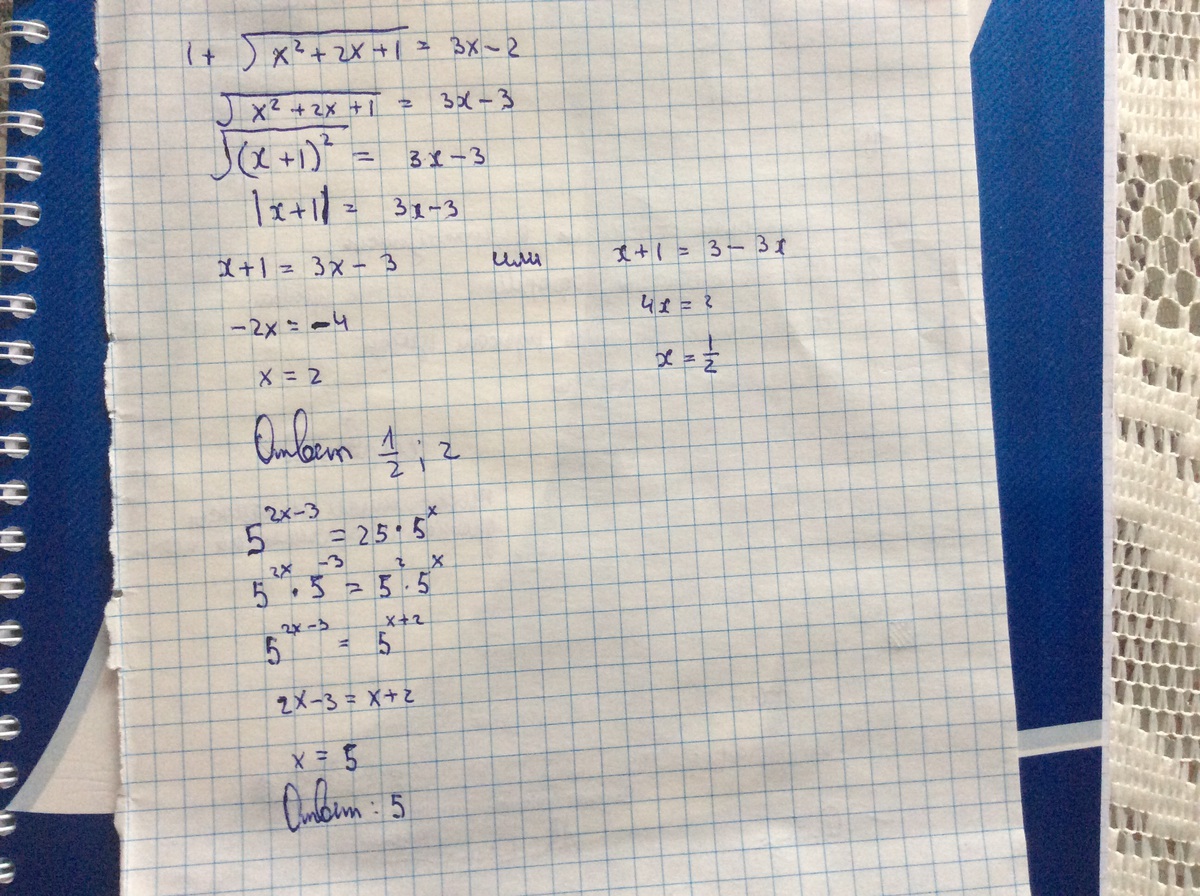 1 + √(x² + 2x + 1) = 3x − 2
√(x² + 2x + 1) = 3x − 3
√((x + 1)²) = 3x − 3
|x+1| = 3x−3
x+1 = 3x − 3 или x+1 = 3 − 3x
−2x = −4 4x = 2
x = 2 x = 1/2
Ответ 1/2 ; 2
5^(2x−3) = 25 · 5^x
5^(2x) · 5^(−3) = 5² · 5^x
5^(2x−3) = 5^(x+2)
2x−3 = x+2
x = 5
Ответ : 5